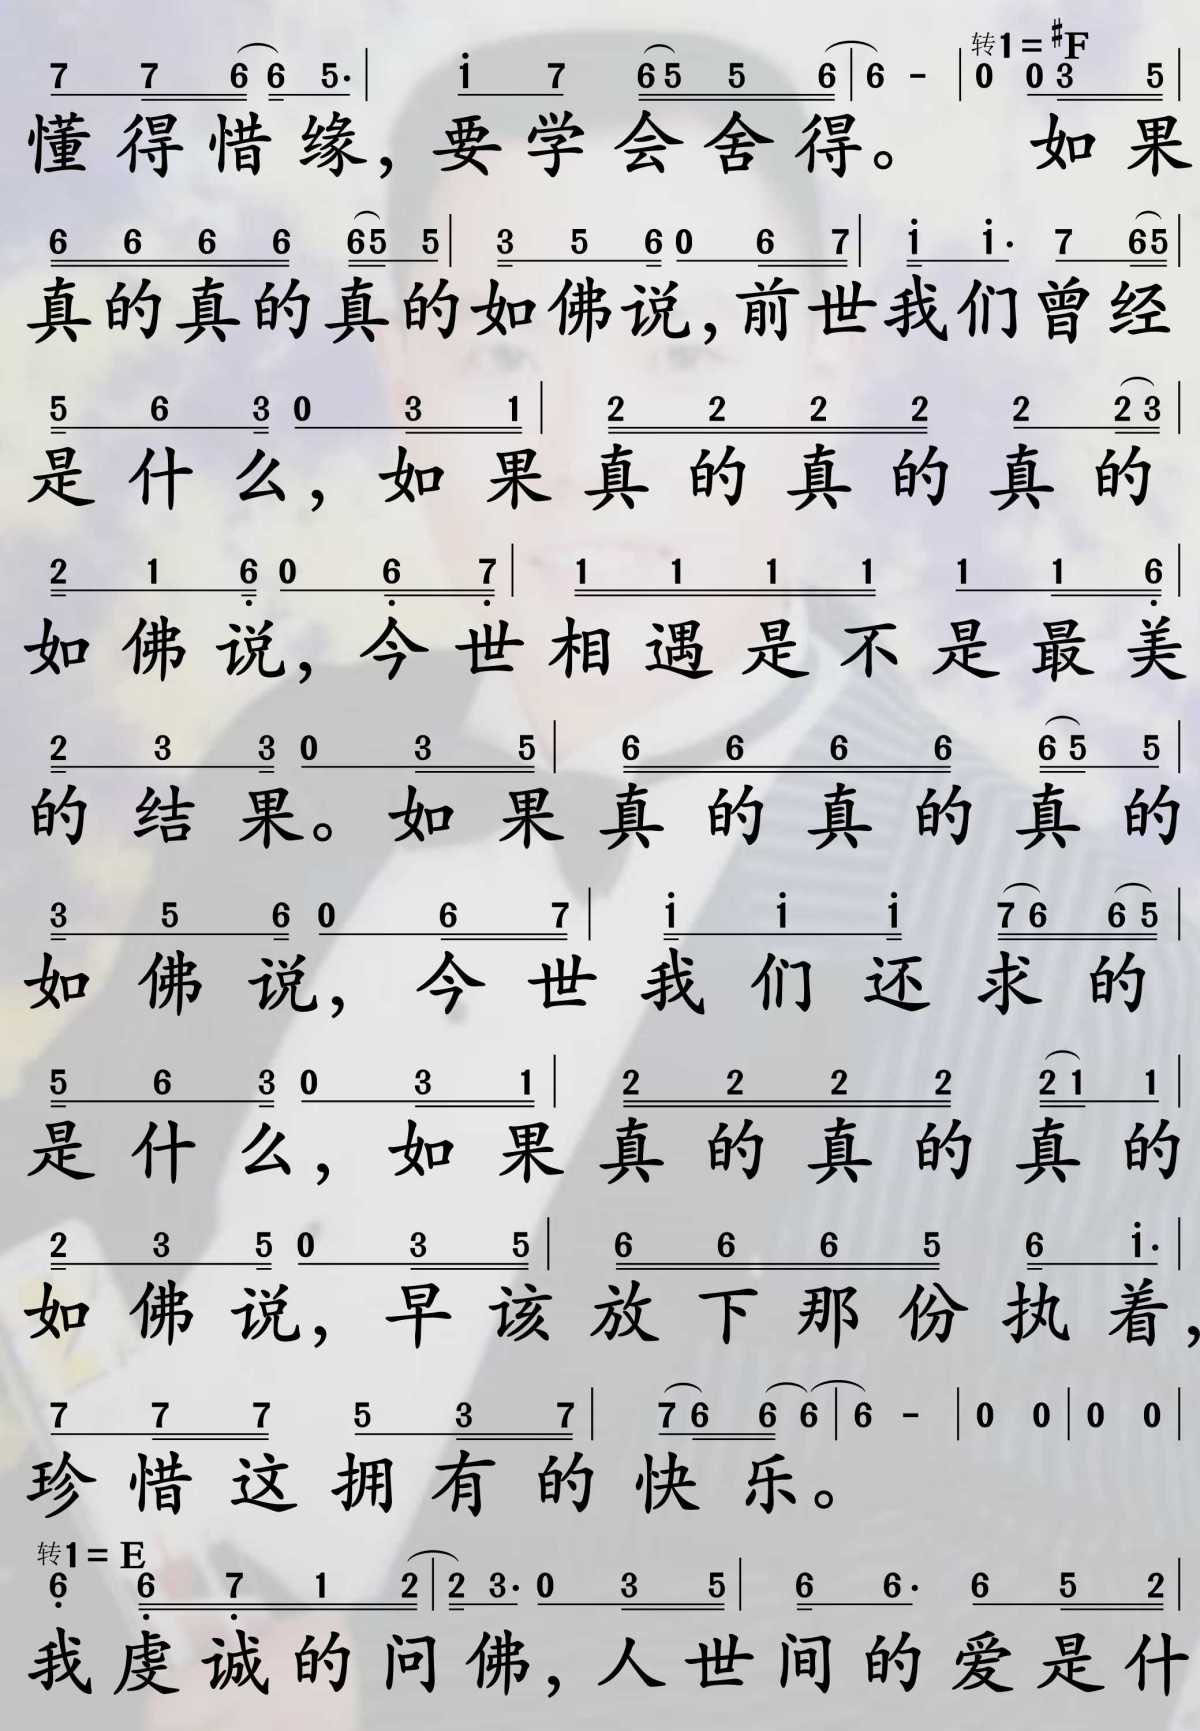 转1=#F
7 7 6 6 5· | i 7 6 5 5 6 | 6 - | 0 0 3 5 |
懂得惜缘，要学会舍得。 如果
6 6 6 6 6 5 5 | 3 5 6 0 6 7 | i i· 7 6 5 |
真的真的真的如佛说，前世我们曾经
5 6 3 0 3 1 | 2 2 2 2 2 2 3 |
是什么，如果真的真的真的
2 1 6̣ 0 6̣ 7̣ | 1 1 1 1 1 1 6̣ |
如佛说，今世相遇是不是最美
2 3 3 0 3 5 | 6 6 6 6 6 5 5 |
的结果。如果真的真的真的
3 5 6 0 6 7 | i i i 7 6 6 5 |
如佛说，今世我们还求的
5 6 3 0 3 1 | 2 2 2 2 2 1 1 |
是什么，如果真的真的真的
2 3 5 0 3 5 | 6 6 6 5 6 i· |
如佛说，早该放下那份执着，
7 7 7 5 3 7 | 7 6 6 6 | 6 - | 0 0 | 0 0 |
珍惜这拥有的快乐。
转1=E
6̣ 6̣ 7̣ 1 2 | 2 3· 0 3 5 | 6 6· 6 5 2 |
我虔诚的问佛，人世间的爱是什